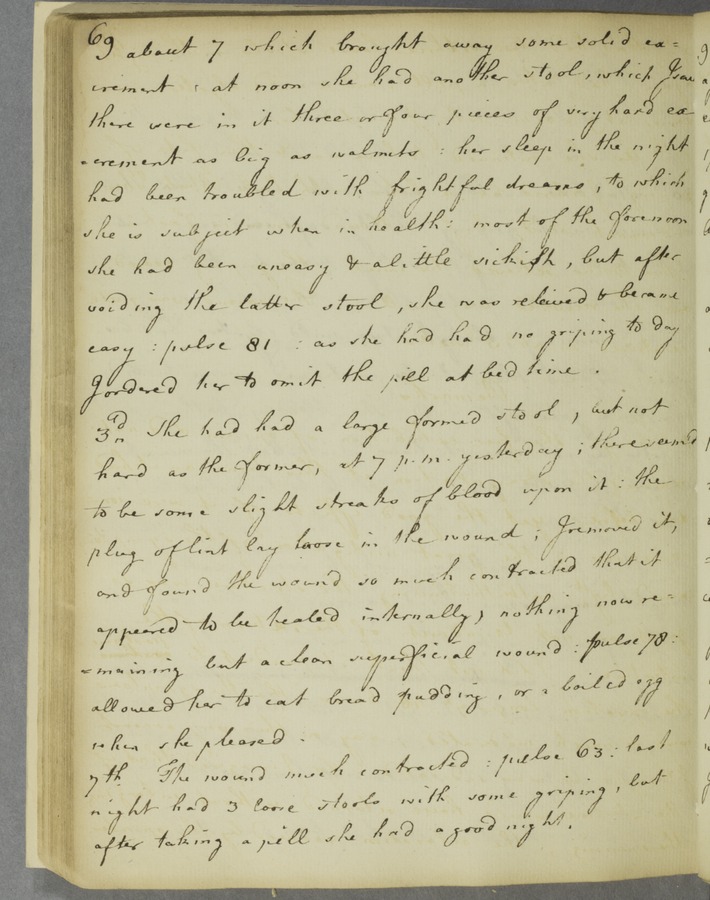 69 about 7 which brought away some solid ex=
crement : at noon she had another stool, which I saw
there were in it three or four pieces of very hard ex=
=crement as big as walnuts : her sleep in the night
had been troubled with frightful dreams, to which
she is subject when in health : most of the forenoon
she had been uneasy & a little sickish, but after
voiding the latter stool, she was releived & became
easy : pulse 81 : as she had had no griping to day
I ordered her to omit the pill at bed time.
3d. She had had a large formed stool, but not
hard as the former, at 7 p.m. yesterday ; there seem'd
to be some slight streaks of blood upon it : the
plug of lint lay loose in the wound ; I removed it,
and found the wound so much contracted that it
appeared to be healed internally, nothing now re=
=maining but a clean superficial wound : pulse 78 :
allowed her to eat bread pudding, or a boiled egg
when she pleased.
7th. The wound much contracted : pulse 63 : last
night had 3 loose stools with some griping, but
after taking a pill she had a good night.